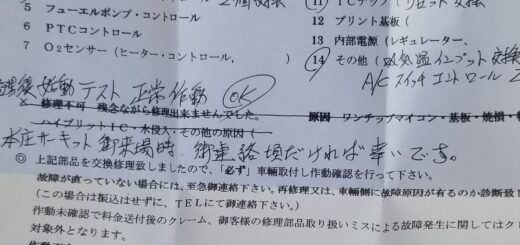 5 フューエルポンプ・コントロール
11 ICチップ(
6 PTCコントロール
12 プリント基板(
7 O₂センサー(ヒーター・コントロール,  )
13 内部電源(レギュレーター、
14 その他( 吸気温インプット 交換
A/C スイッチ コントロール
修理後始動テスト 正常作動 OK
× 修理不可 残念ながら修理出来ませんでした。
原因 ワンチップマイコン・基板・焼損・
ハイブリットIC・水侵入・その他の原因(
本庄サーキット 御来場時、御連絡頂だければ幸いです。
◎ 上記部品を交換修理致しましたので、「必ず」車輛取付し作動確認を行って下さい。
故障が直っていない場合には、至急御連絡下さい。再修理又は、車輛側に故障原因が有るのか診断致し
(この場合は振込はせずに、TELにて御連絡下さい。)
作動未確認で料金送付後のクレーム、御客様の修理部品取り扱いミスによる故障発生に関してはク
対象外となります。